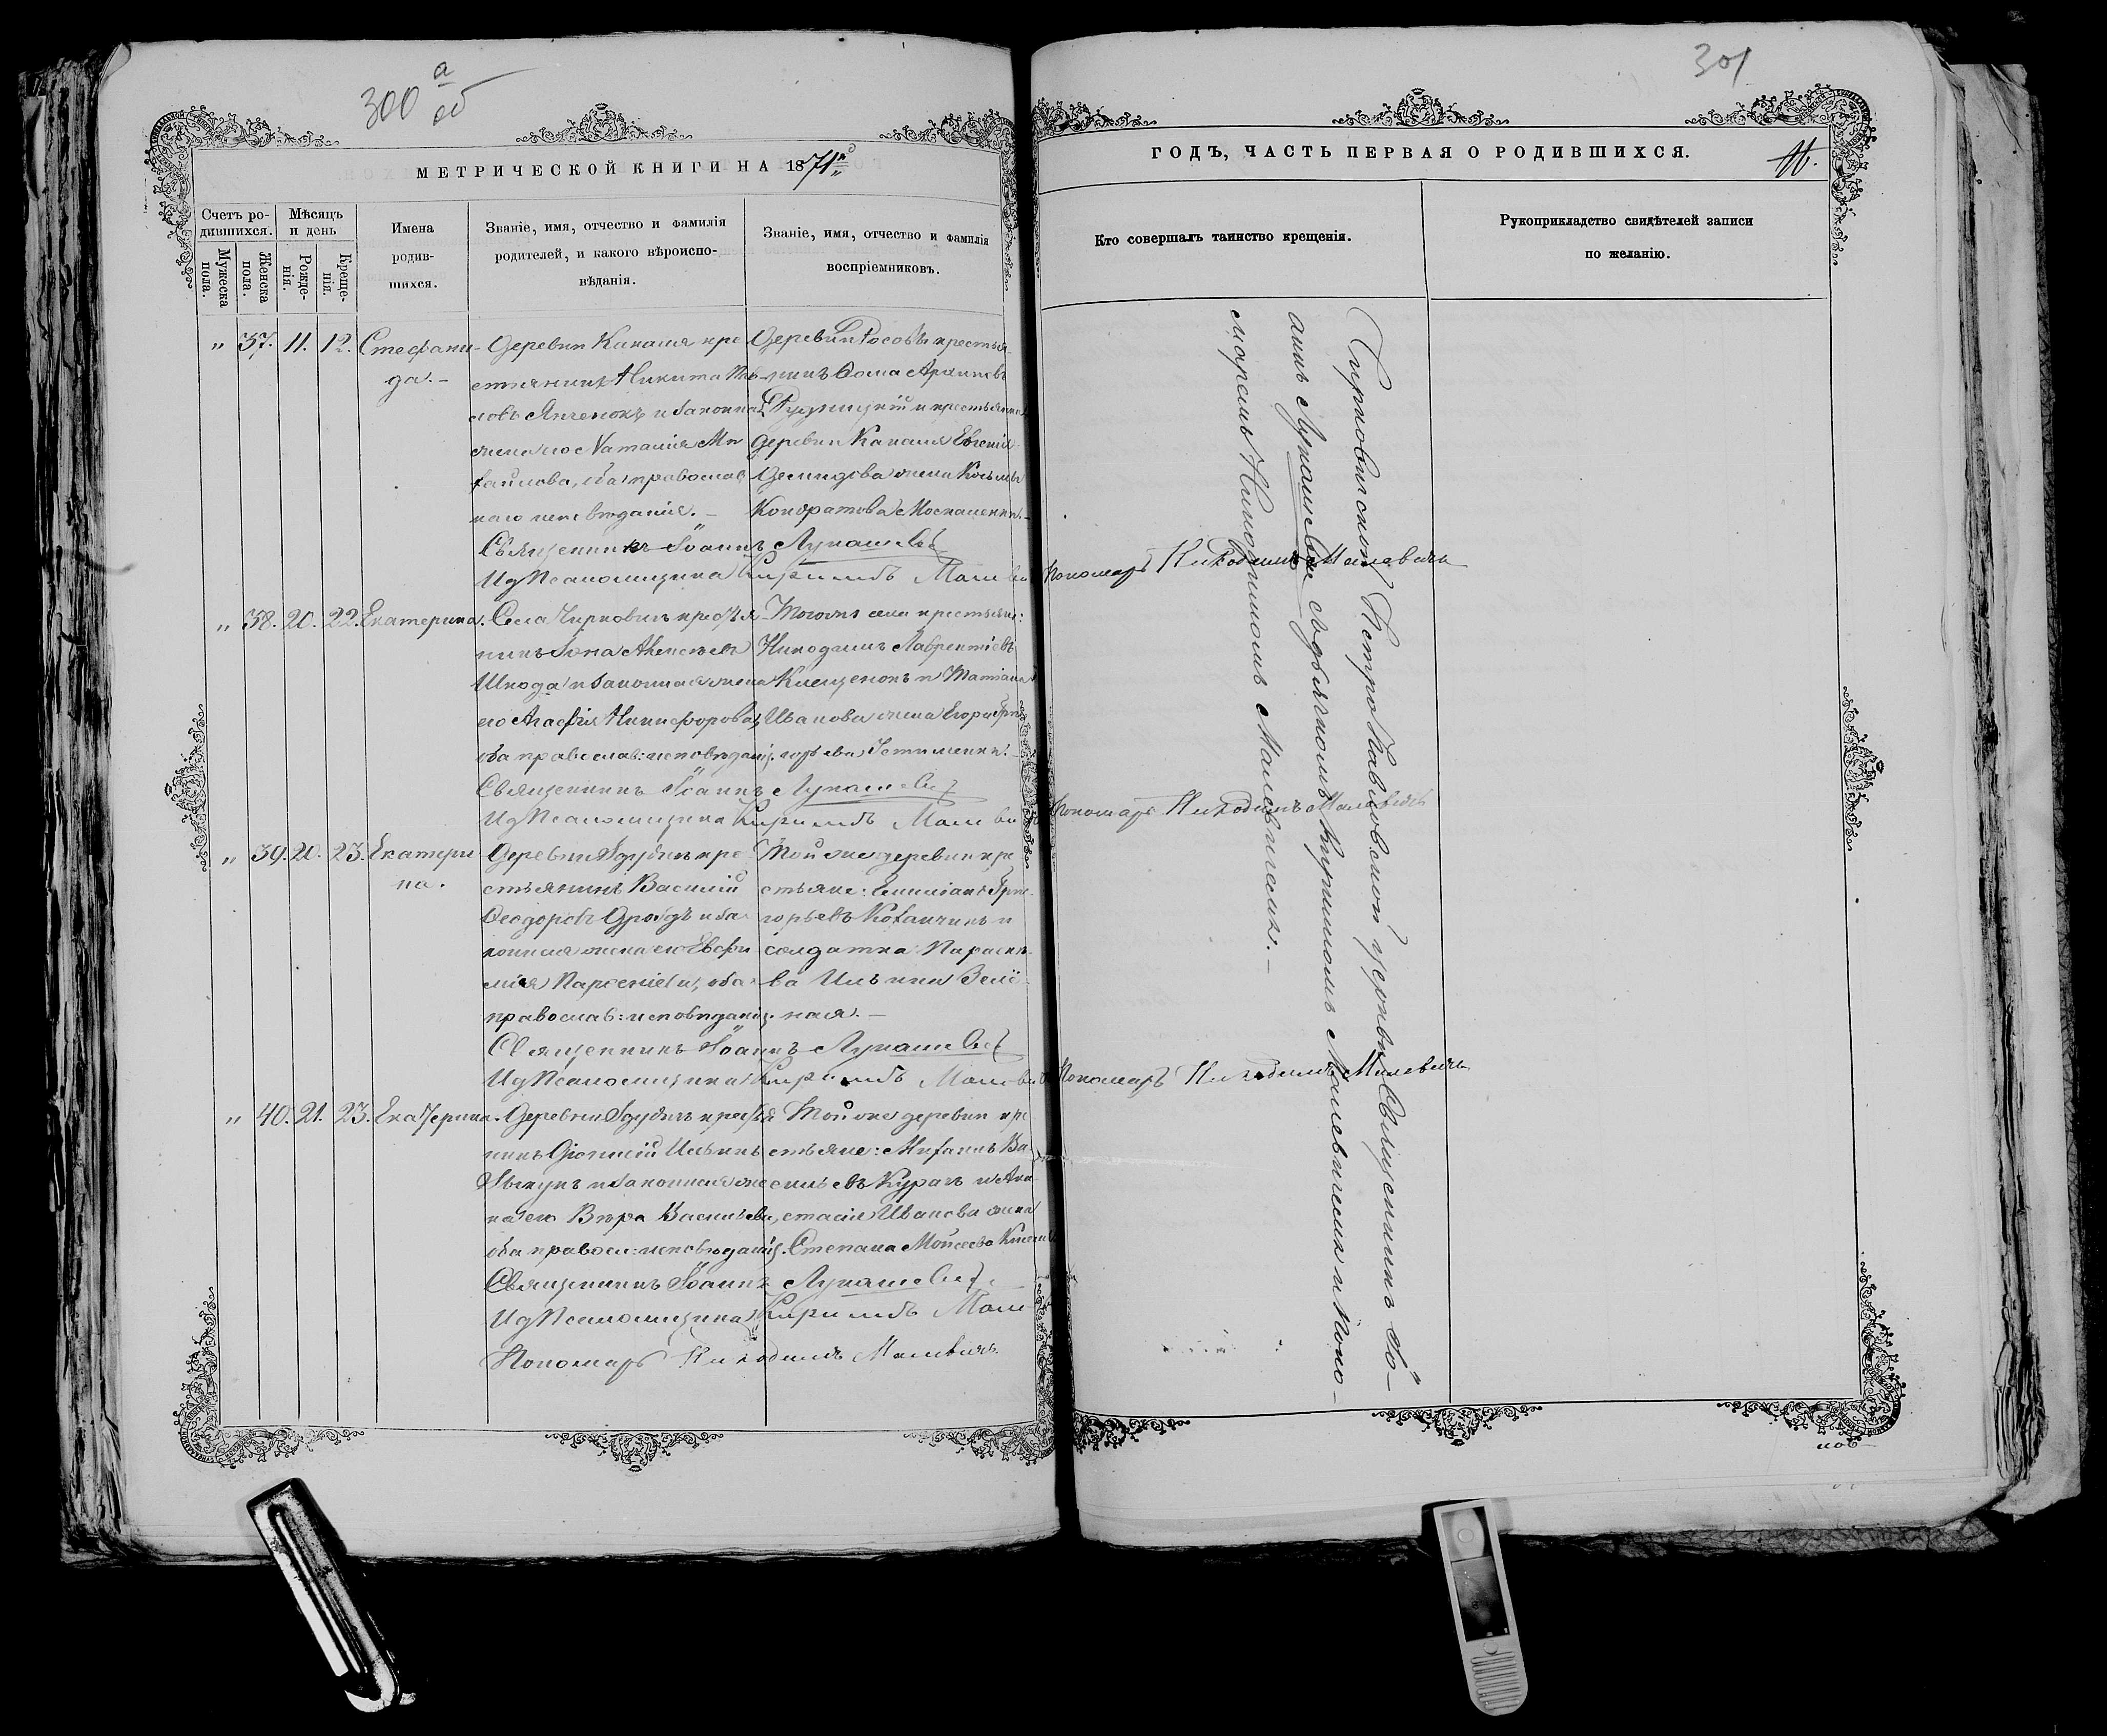 300 а/об
МЕТРИЧЕСКОЙ КНИГИ НА 1871й
Счетъ ро-
дившихся.
Мужеска
пола.
Женска
пола.
Мѣсяцъ
и день
Рожде-
нія.
Креще-
нія.
Имена
родив-
шихся.
Званіе, имя, отчество и фамилія
родителей, и какого вѣроиспо-
вѣданія.
Званіе, имя, отчество и фамилія
воспріемниковъ.
„ 37. 11. 12. Стефани-
да. –
Деревни Канаша кре
стьянинъ Никита
и законная
жена его Наталія Ми
хаилова, оба православ
наго исповѣданія. –
крестья-
нинъ Ѳома Архиповъ
и крестьянка
деревни Канаша Евгенія
Демидова жена Козьмы
Кондратова
Священникъ Іоаннъ Лукашевич
Ид Псаломщика Кириллъ Малевичъ
„ 38. 20. 22. Екатерина.
Села крестья-
нинъ Алексѣевъ
Шкода и законная жена
его Агафія Никифорова,
оба православ: исповѣданія.
Тогожъ села крестьяне:
Никодимъ Лаврентіевъ
Клещенокъ и
Иванова жена Егора Гри
горьева Устименки.
Священникъ Іоаннъ Лукашевич
Ид Псаломщика Кириллъ Малевичъ
„ 39. 20. 23. Екатери
на.
Деревни кре
стьянинъ Василій
Ѳеодоровъ Дроздъ и за
конная жена его Евфи
мія Парѳеніева, оба
православ: исповѣданія.
Той же деревни кре
стьяне: Емиліанъ Гри
горьевъ и
солдатка Параске
ва Ильина
ная. –
Священникъ Іоаннъ Лукашевич
Ид Псаломщика Кириллъ Малевичъ
„ 40. 21. 23. Екатерина.
Деревни крестья
нинъ Діонисій Ильинъ
и законная же
на его Вѣра Васильева,
оба правосл: исповѣданія.
Той же деревни кре
стьяне: Михаилъ Ва
сильевъ и Ана
стасія Иванова жена
Степана Моисеева
Священникъ Іоаннъ Лукашевич
Ид Псаломщика Кириллъ Мале
Пономарь Никодимъ Малевичъ
301
ГОДЪ, ЧАСТЬ ПЕРВАЯ О РОДИВШИХСЯ.
Кто совершалъ таинство крещенія.
Рукоприкладство свидѣтелей записи
по желанію.
Петро Павловской церкви Священникъ Іо-
аннъ Лукашевич съ дьячкомъ Кирилломъ Малевичемъ и поно-
маремъ Никодимомъ Малевичемъ. –
Пономарь Никодимъ Малевичъ
Пономарь Никодимъ Малевичъ
Пономарь Никодимъ Малевичъ